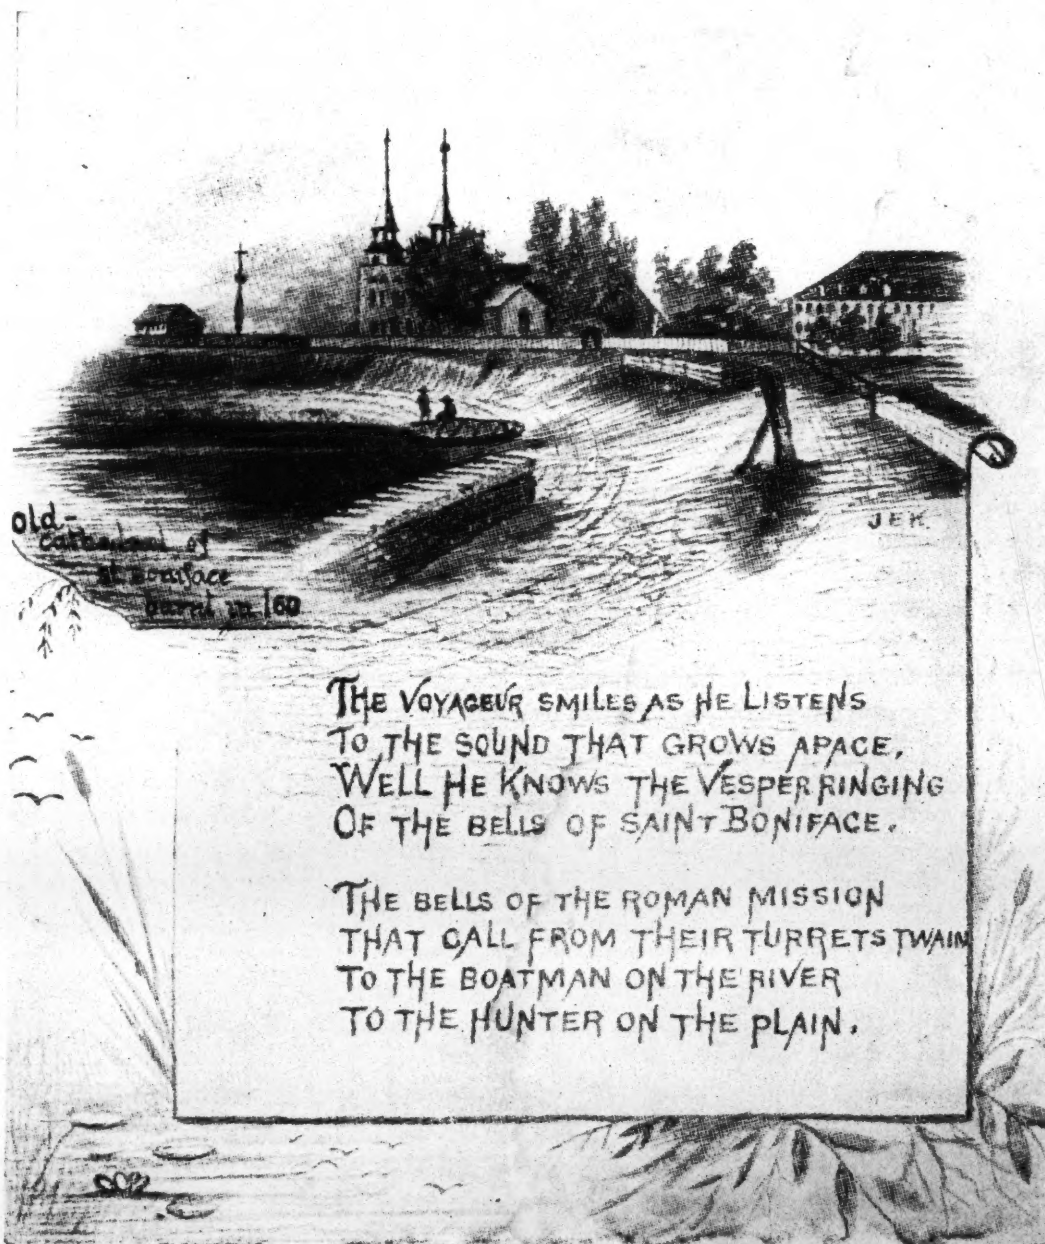 Old-
Cathedral of
St Boniface
burnt in 160
J E K.
THE VOYAGEUR SMILES AS HE LISTENS
TO THE SOUND THAT GROWS APACE,
WELL HE KNOWS THE VESPER RINGING
OF THE BELLS OF SAINT BONIFACE.
THE BELLS OF THE ROMAN MISSION
THAT CALL FROM THEIR TURRETS TWAIN
TO THE BOATMAN ON THE RIVER
TO THE HUNTER ON THE PLAIN.